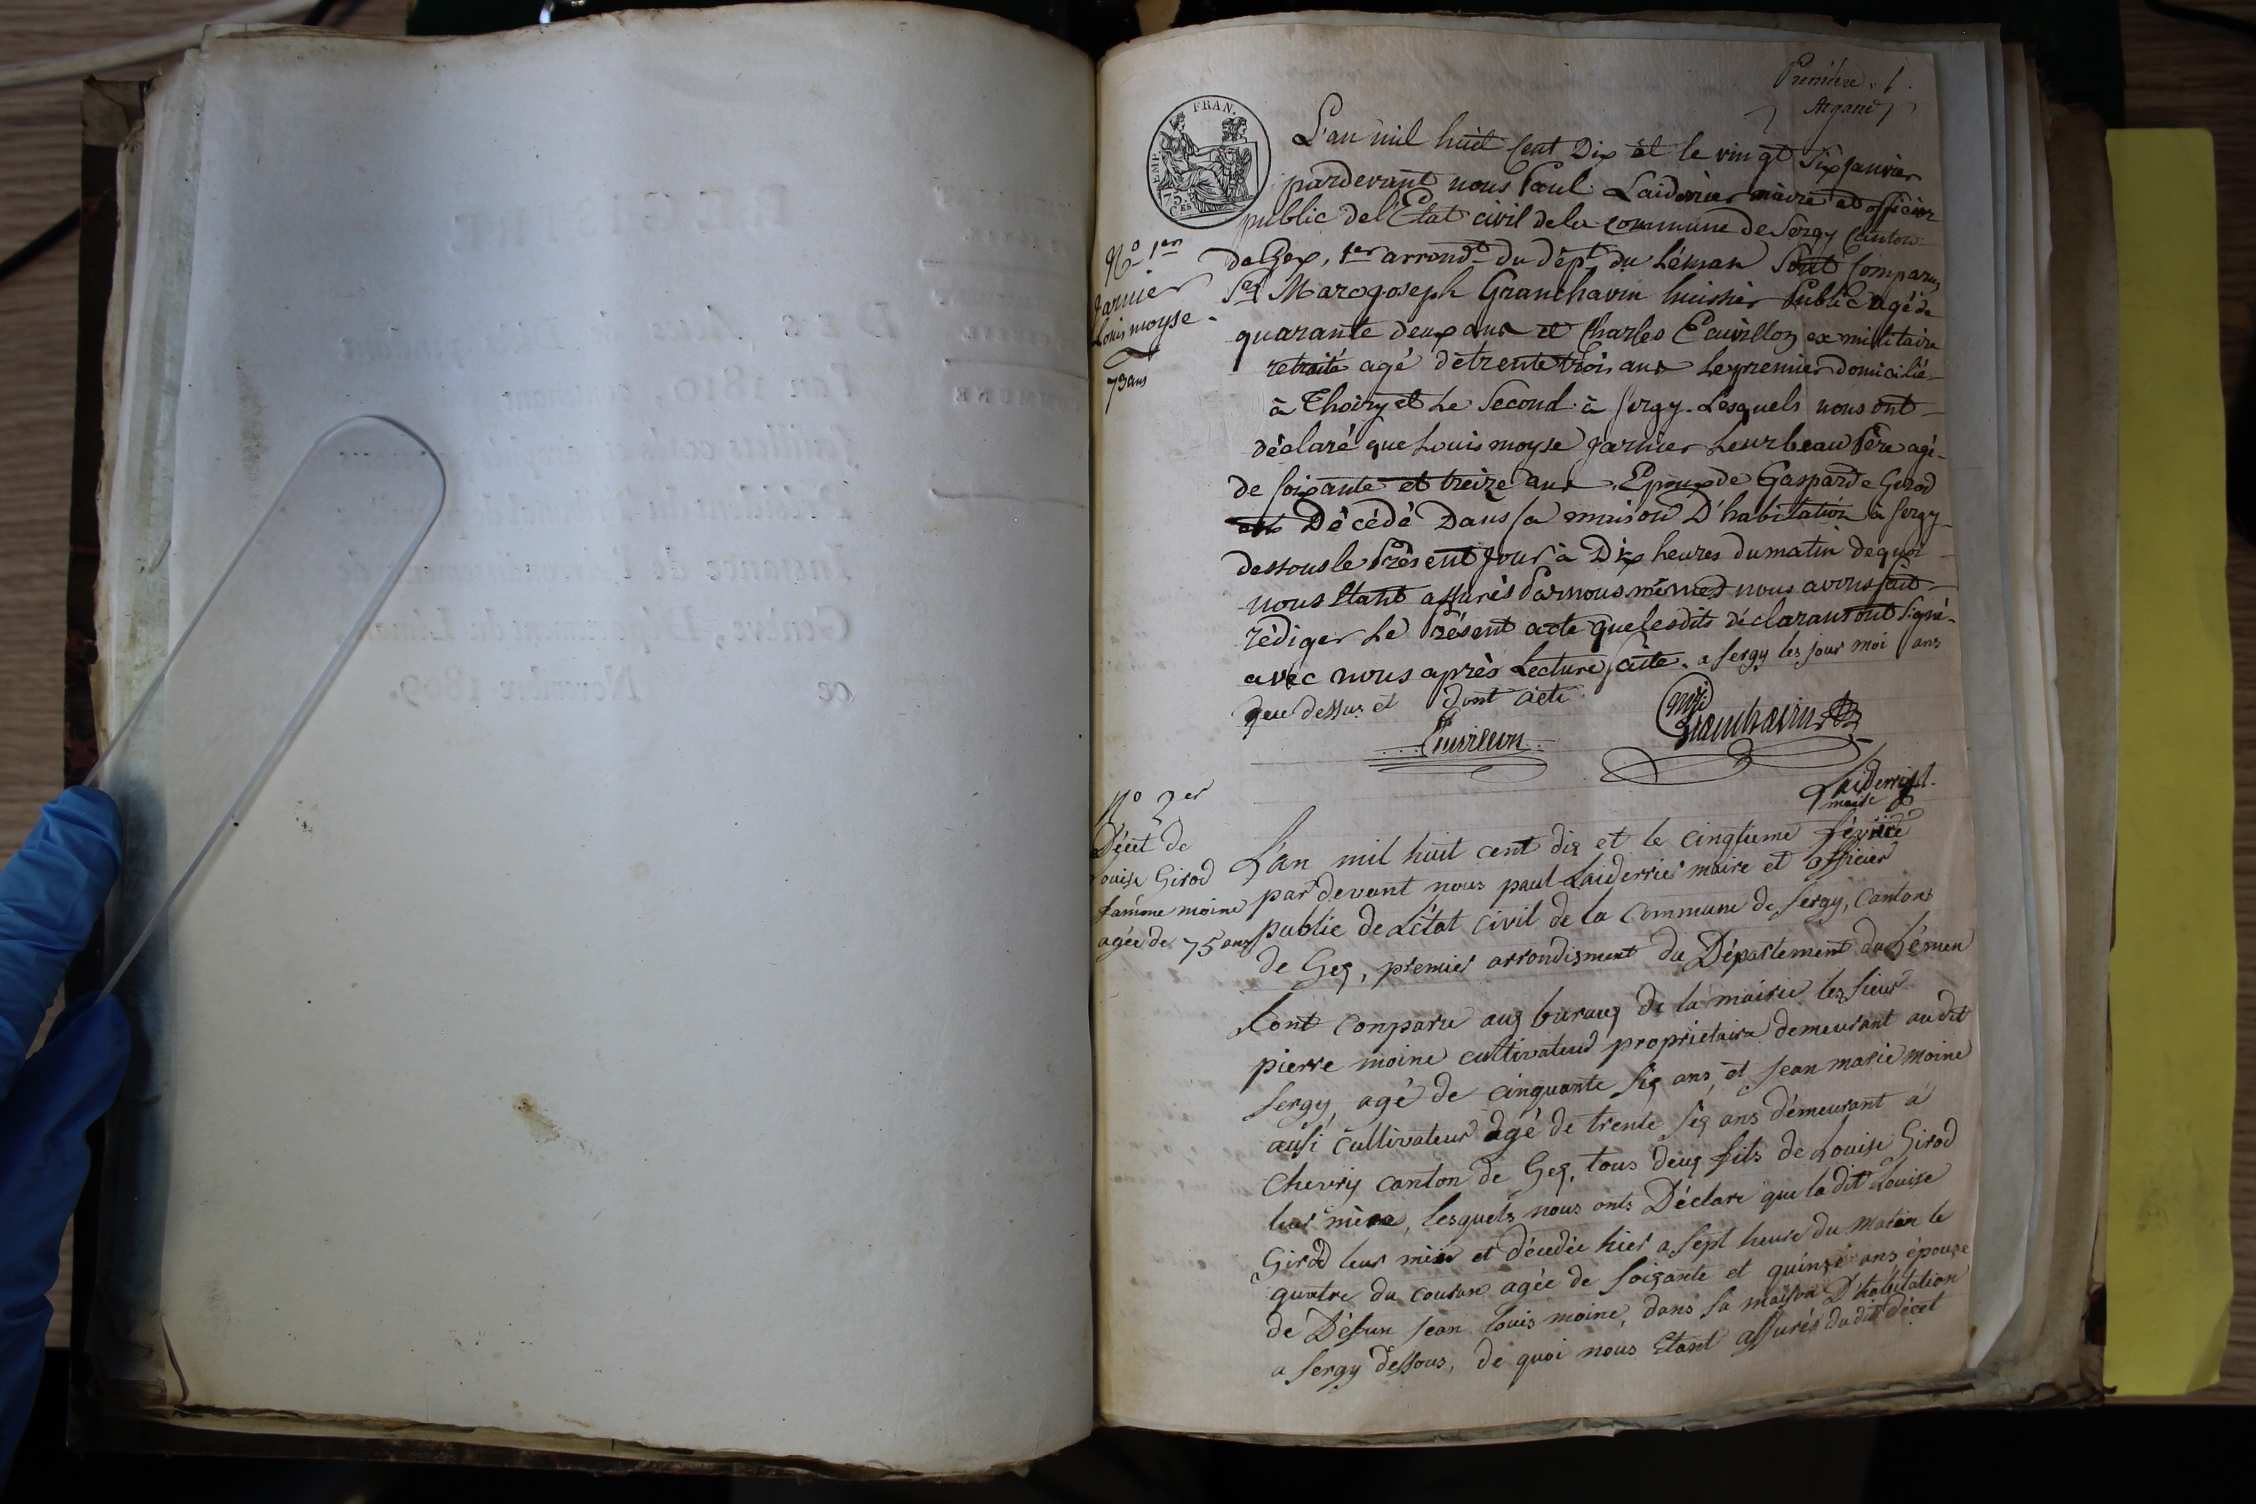 Première . 1 .
Argand
EMP. FRAN.
75 C.es
L'an mil huit Cent Dix et le vingt Six Janvier
pardevant nous Paul Laiderrier maire et officier
public de l'Etat civil de la commune de Sergy Canton
de Gex, 1er arrondt du dépt du Léman Sont Comparus
N.o 1er
Jarnier
Louis moyse .
73 ans
Srs Marc joseph Granchavin huissier Public agé de
quarante deux ans et Charles Cuvillon ex militaire
retraité agé de trente trois ans Le premier domicilié
à Thoiry et Le Second à Sergy. Lesquels nous ont
déclaré que Louis moyse Jarnier Leur beau Père agé
de Soixante et treize ans, Epoux de Gasparde Girod
est Décédé Dans Sa maison D'habitation à Sergy
dessous le Présent Jour à Dix heures du matin de quoi
nous Etant assurés Par nous mêmes nous avons fait
rédiger Le Présent acte que lesdits déclarans ont Signé
avec nous après Lecture faite. a Sergy les jour moi ans
que dessus et dont acte
Cuvillon
Granchavin
Laiderrier
maire
N.o 2er
Décet de
Louise Girod
famme moine
agée de 75 ans
L'an mil huit cent dix et le cinqtieme févrié
par devant nous paul Laiderrier maire et officier
public de L'état civil de la Commune de Sergy, Cantons
de Gex, premier arrondisment du Département du Lémen
Sont comparu aux buraux de la mairie les Sieur
pierre moine cultivateur propriétaire demeurant audit
Sergy, agé de cinquante six ans, et jean marie moine
aussi Cultivateur agé de trente six ans démeurant a
Chevry canton de Gex, tous deux fils de Louise Girod
leur mère, lesquels nous onts Déclaré que la dit Louise
Girod leur mère et décedée hier a Sept heure du matin le
quatre du couran agée de soixante et quinze ans épouse
de Défun jean louis moine, dans sa maison D'habitation
a Sergy dessous, de quoi nous Etant assurés du dit décet